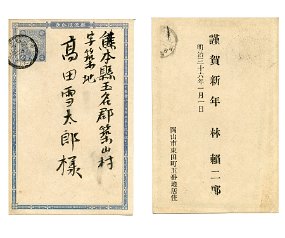 熊本縣玉名郡築山村
字築地
高田雪太郎様
謹賀新年
林賴二郎
明治三十六年一月一日
岡山市東田町五番邸居住